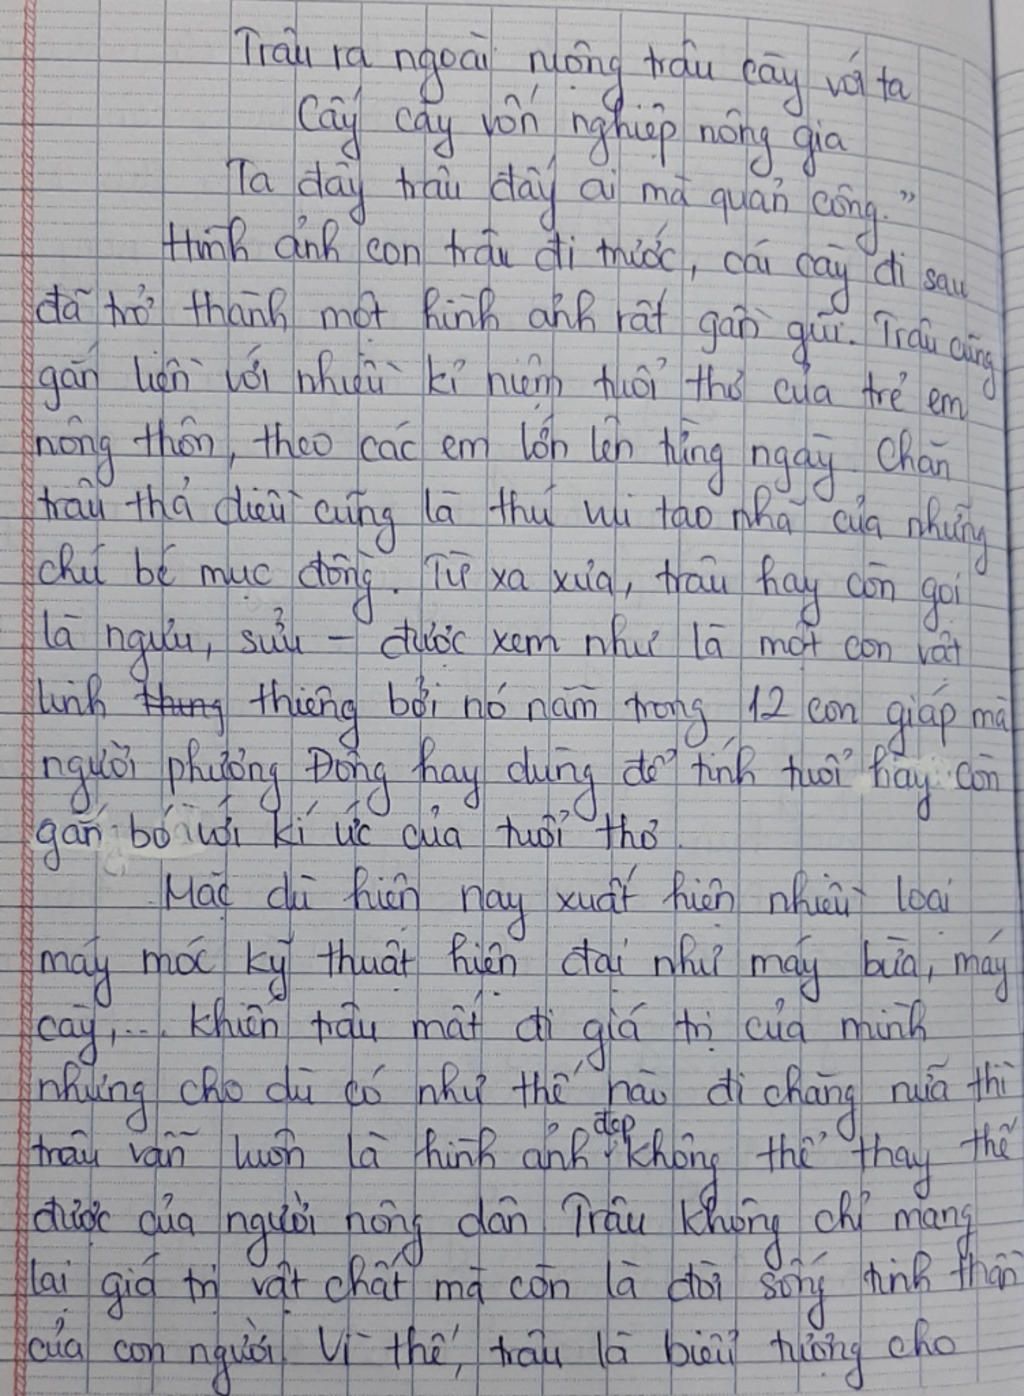 Trâu ra ngoài ruộng trâu cày với ta
Cấy cày vốn nghiệp nông gia
Ta đây trâu đấy ai mà quản công."
Hình ảnh con trâu đi trước, cái cày đi sau
đã trở thành một hình ảnh rất gần gũi. Trâu cũng
gắn liền với nhiều kỉ niệm tuổi thơ của trẻ em
nông thôn, theo các em lớn lên từng ngày. Chăn
trâu thả diều cũng là thú vui tao nhã của những
chú bé mục đồng. Từ xa xưa, trâu hay còn gọi
là ngưu, sửu - được xem như là một con vật
linh thiêng bởi nó nằm trong 12 con giáp mà
người phương Đông hay dùng để tính tuổi hay còn
gắn bó với kí ức của tuổi thơ.
Mặc dù hiện nay xuất hiện nhiều loại
máy móc kỹ thuật hiện đại như máy bừa, máy
cày,... khiến trâu mất đi giá trị của mình
nhưng cho dù có như thế nào đi chăng nữa thì
trâu vẫn luôn là hình ảnh đẹp không thể thay thế
được của người nông dân. Trâu không chỉ mang
lại giá trị vật chất mà còn là đời sống tinh thần
của con người. Vì thế, trâu là biểu tượng cho